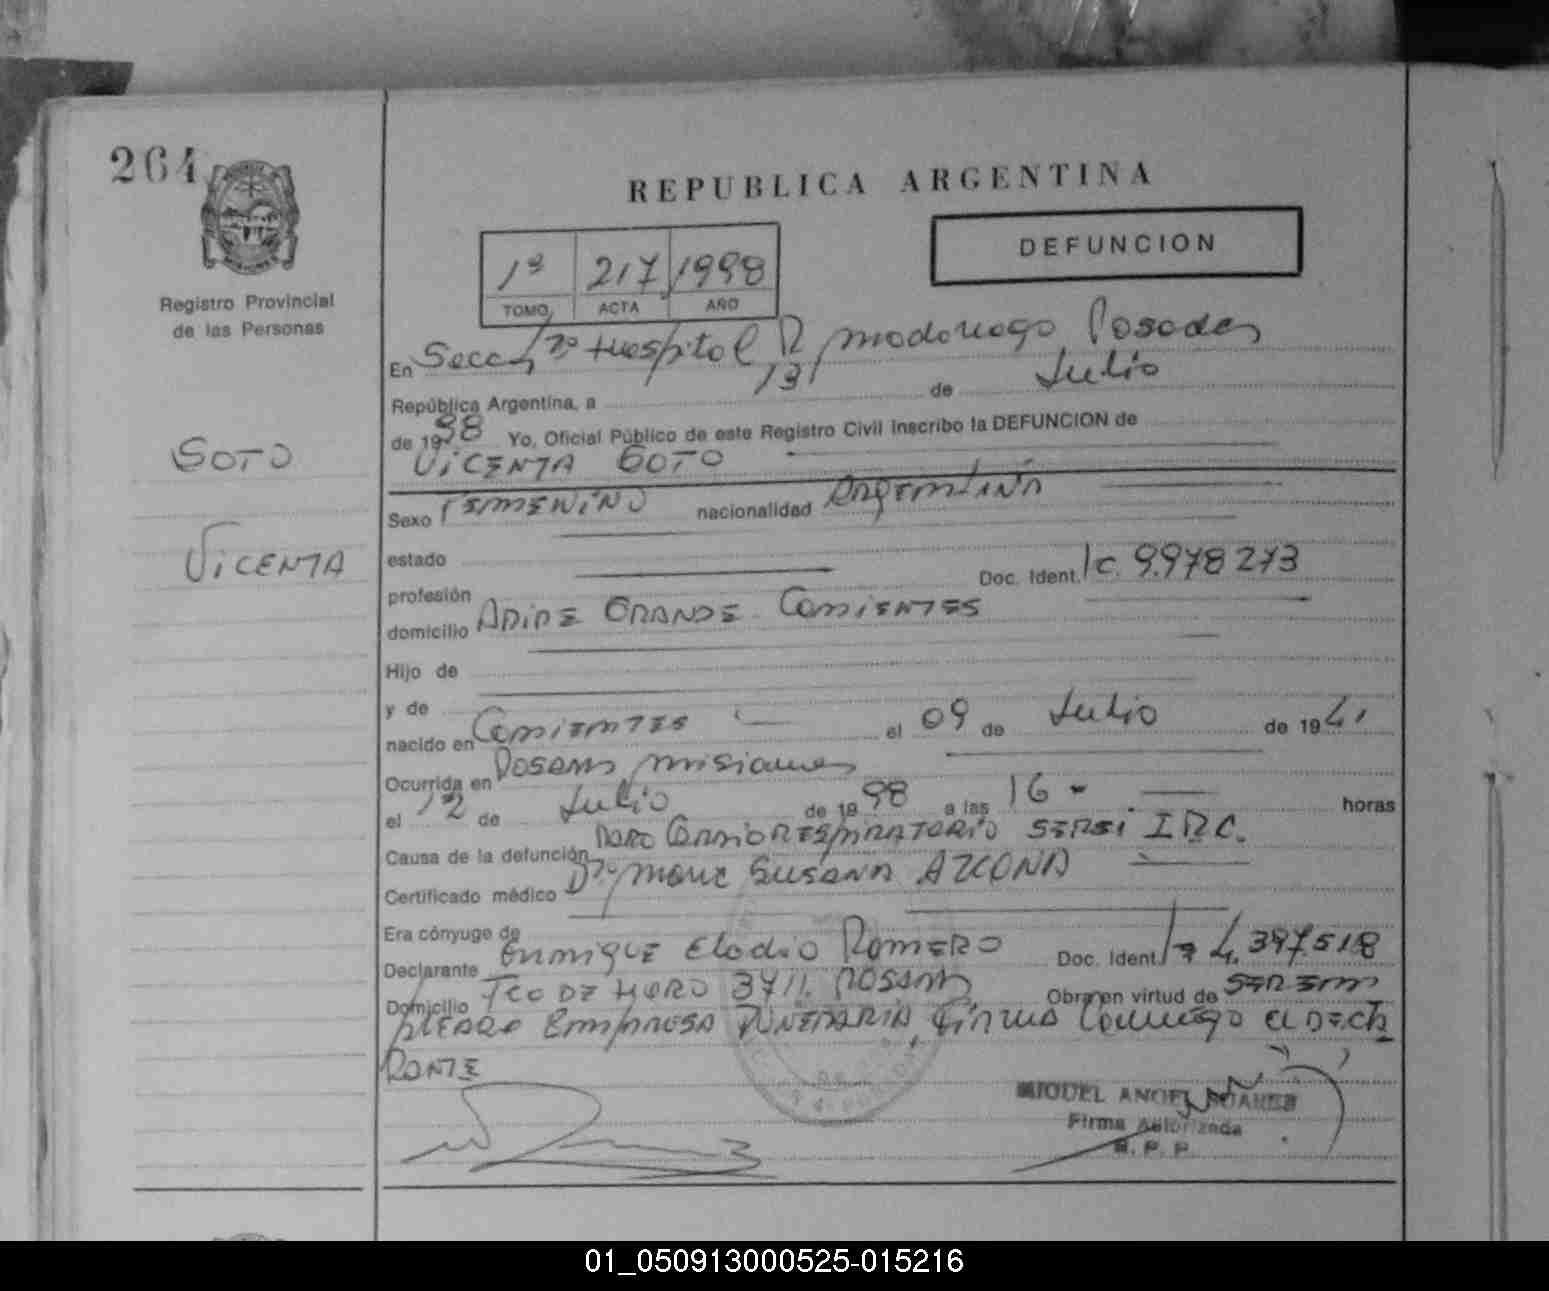 264
REPUBLICA ARGENTINA
DEFUNCION
1º 217 1998
TOMO ACTA AÑO
Registro Provincial
de las Personas
SOTO
VICENTA
En Secc 7º Hospital R Madariaga Posadas
República Argentina, a 13 de Julio
de 1998 Yo, Oficial Público de este Registro Civil inscribo la DEFUNCION de
VICENTA SOTO
Sexo FEMENINO nacionalidad ARGENTINA
estado
profesión Doc. Ident. lc. 9.978273
domicilio GRANDE. CORRIENTES
Hijo de
y de
nacido en CORRIENTES el 09 de Julio de 1941
Ocurrida en POSADAS MISIONES
el 12 de Julio de 1998 a las 16 - horas
Causa de la defunción PARO CARDIORESPIRATORIO
Certificado médico Drº SUSANA AZCONA
Era cónyuge de
Declarante ENRIQUE Elodio ROMERO Doc. Ident. 4.397.518
Domicilio POSADAS Obra en virtud de SER EM
PLEADO EMPRESA FUNERARIA, FIRMA Conmigo el DECLA
RANTE
MIGUEL ANGEL SUAREZ
Firma Autorizada
R. P. P.
01_050913000525-015216